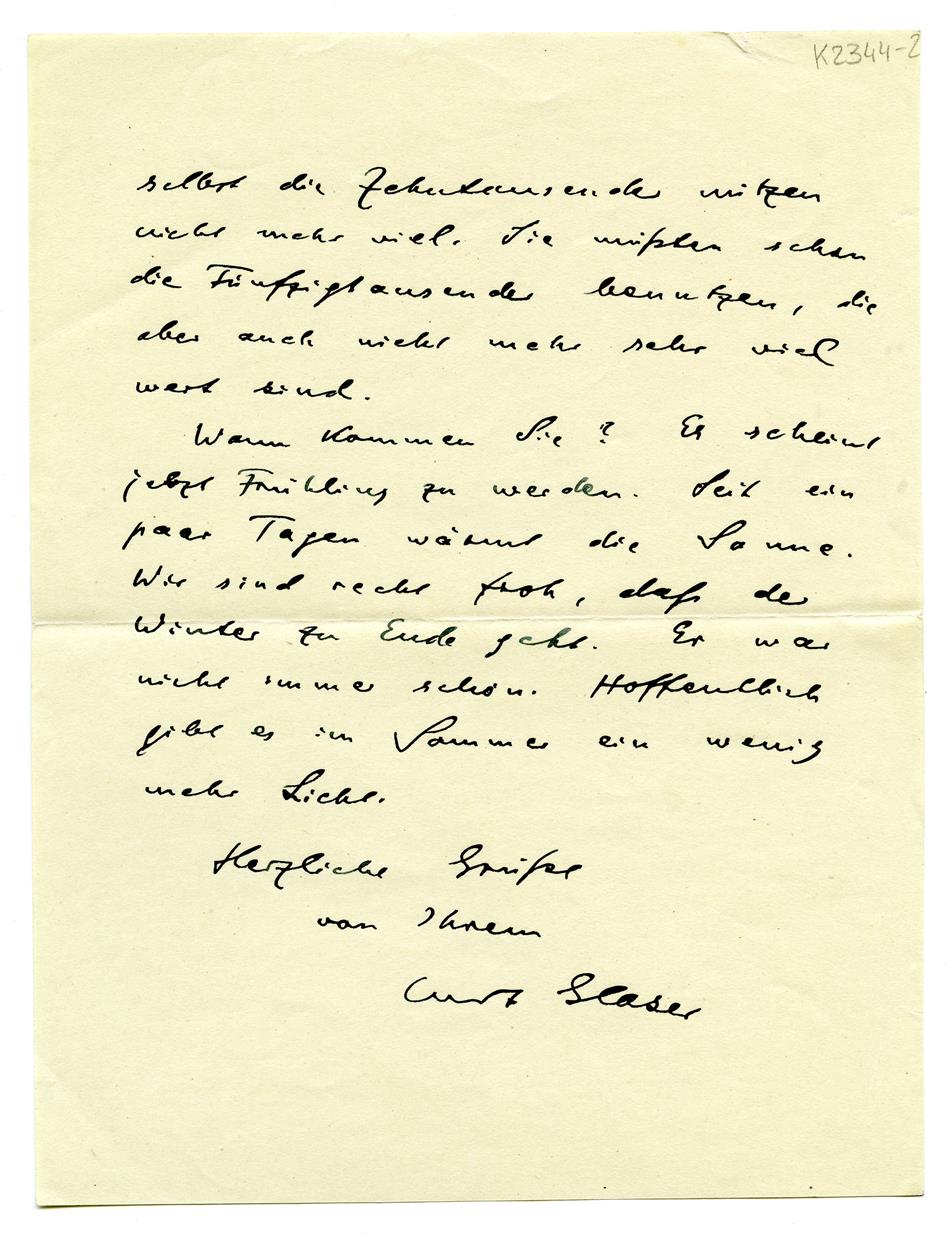 K2344-2
selbst die Zehntausender nützen
nicht mehr viel. Sie müßten schon
die Fünfzigtausender benutzen, die
aber auch nicht mehr sehr viel
wert sind.
Wann kommen Sie? Es scheint
jetzt Frühling zu werden. Seit ein
paar Tagen wärmt die Sonne.
Wir sind recht froh, daß der
Winter zu Ende geht. Er war
nicht immer schön. Hoffentlich
gibt es im Sommer ein wenig
mehr Licht.
Herzliche Grüße
von Ihrem
Curt Glaser